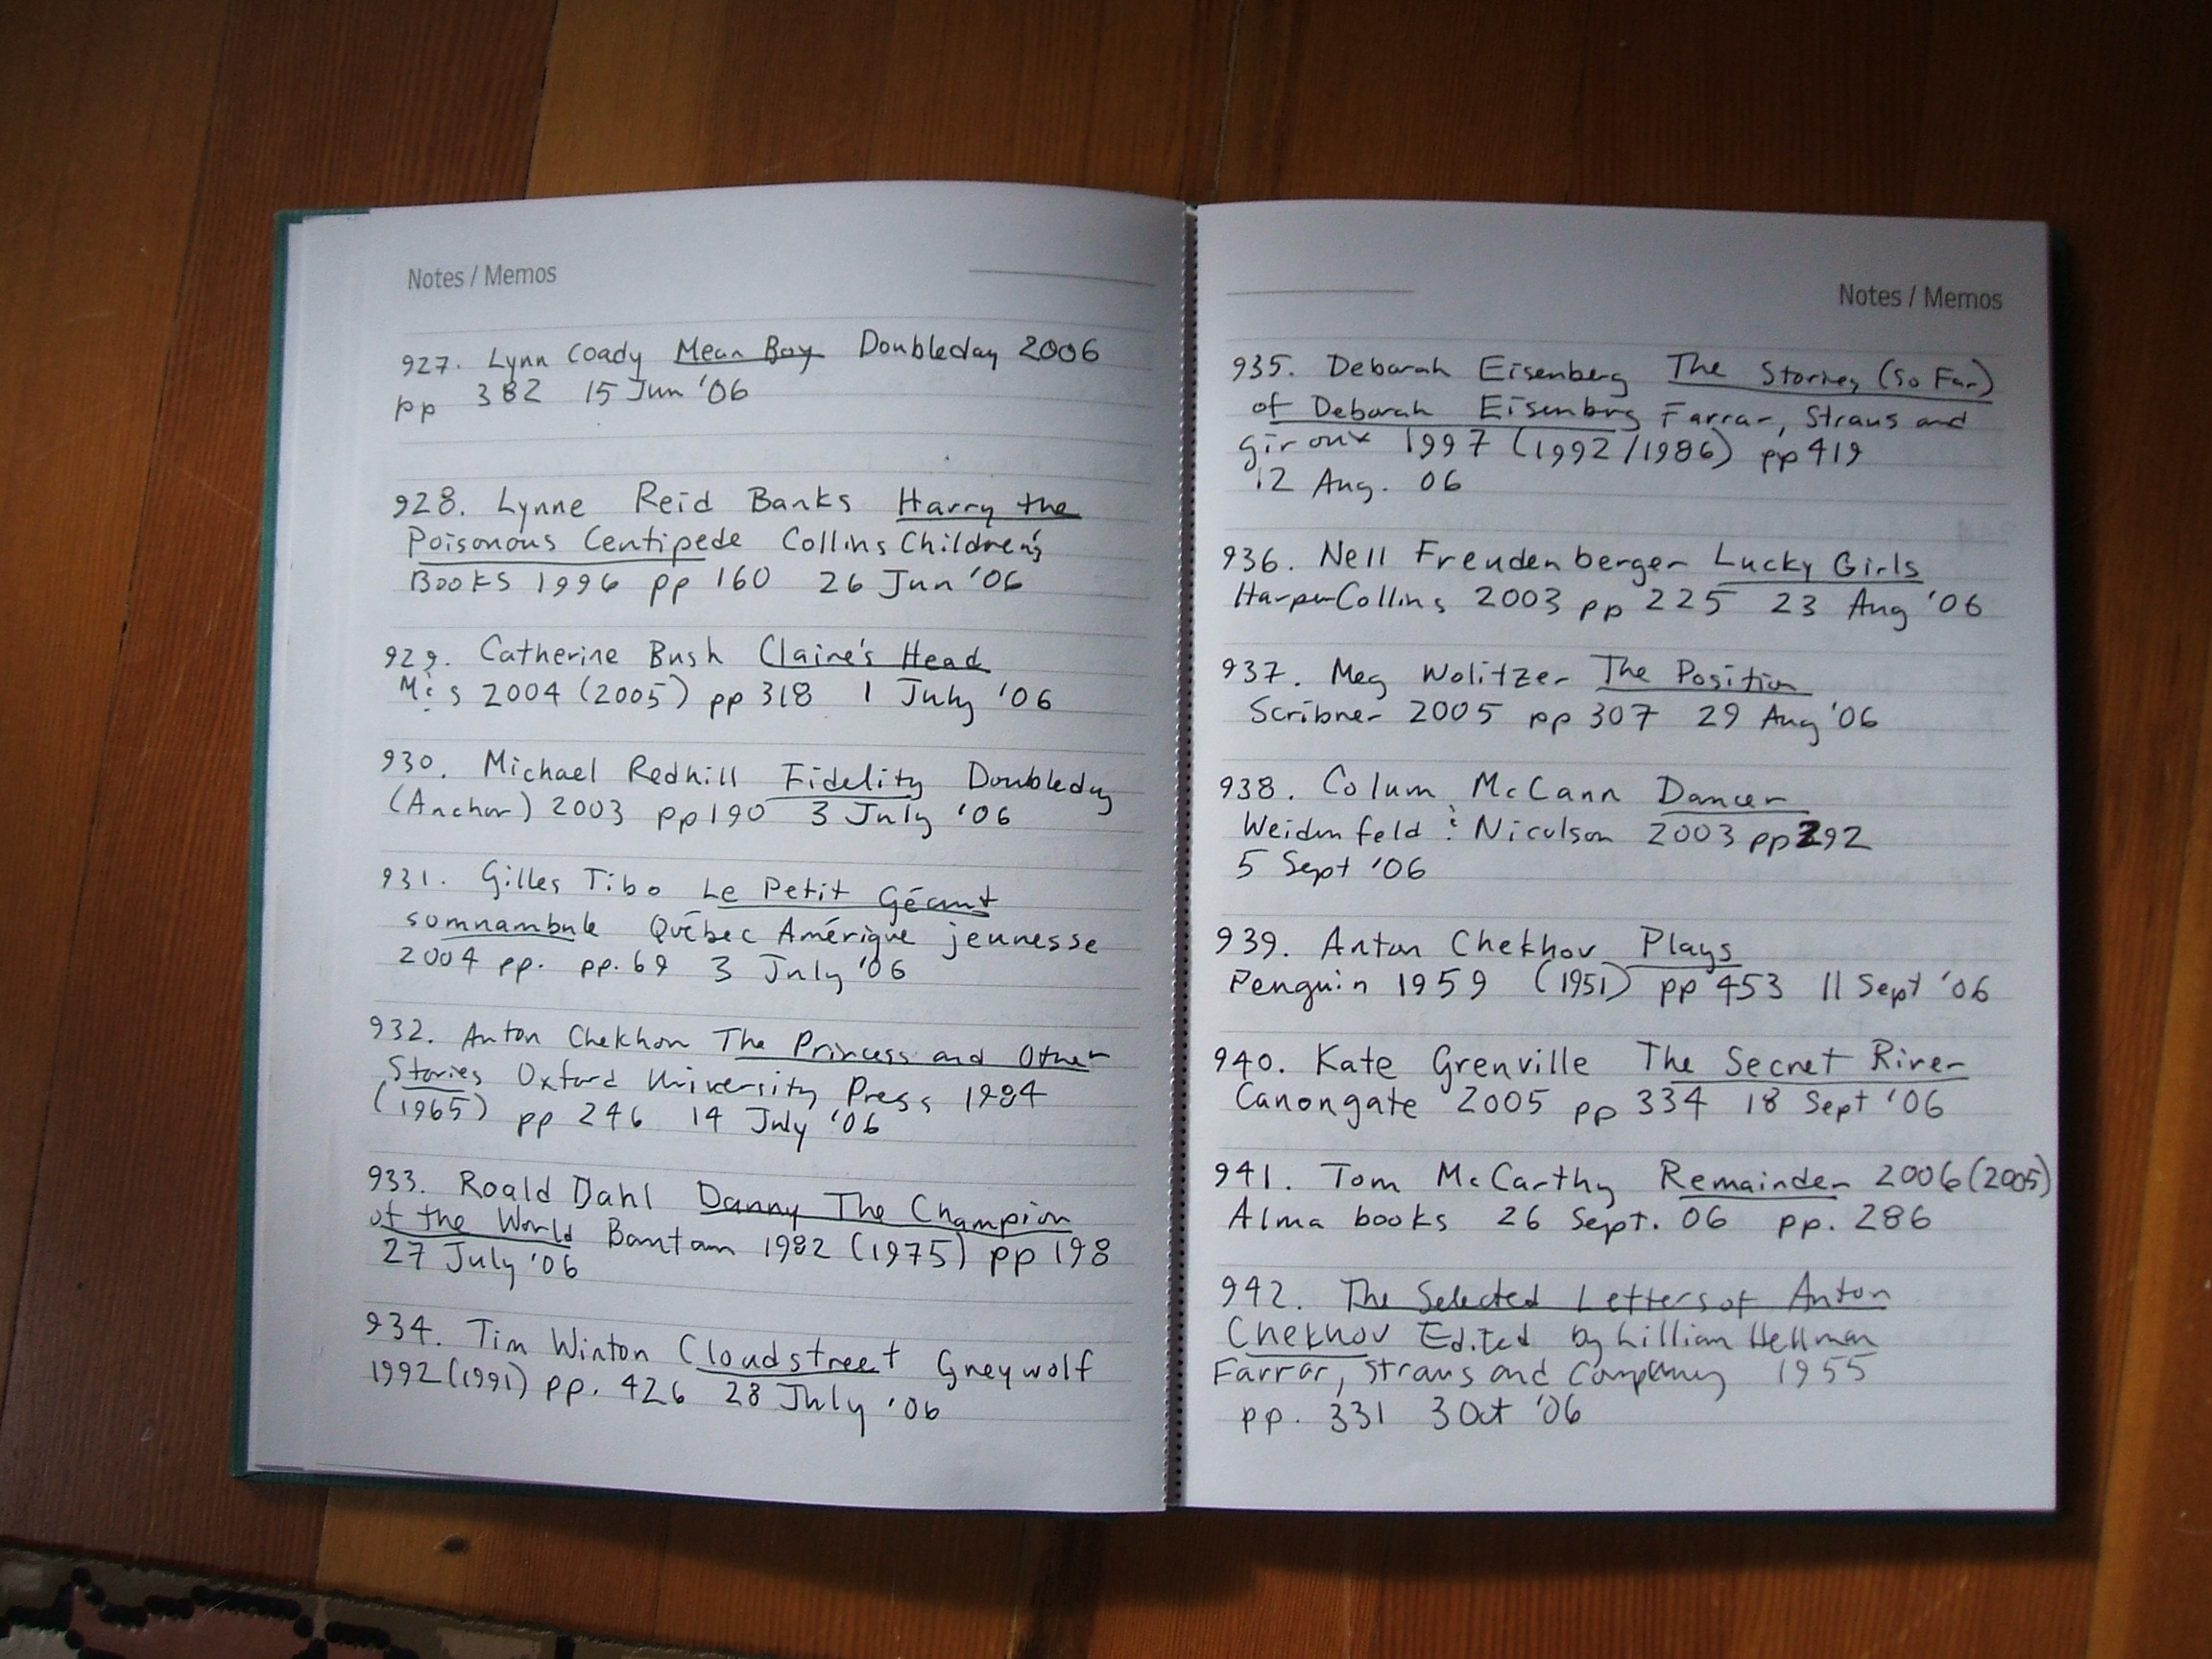 Notes / Memos
927. Lynn Coady Mean Boy Doubleday 2006
pp 382 15 Jun '06
928. Lynne Reid Banks Harry the
Poisonous Centipede Collins Children's
Books 1996 pp 160 26 Jun '06
929. Catherine Bush Claire's Head
M&S 2004 (2005) pp 318 1 July '06
930. Michael Redhill Fidelity Doubleday
(Anchor) 2003 pp 190 3 July '06
931. Gilles Tibo Le Petit Géant
somnambule Québec Amérique jeunesse
2004 pp. pp. 69 3 July '06
932. Anton Chekhov The Princess and Other
Stories Oxford University Press 1984
(1965) pp 246 14 July '06
933. Roald Dahl Danny The Champion
of the World Bantam 1982 (1975) pp 198
27 July '06
934. Tim Winton Cloudstreet Greywolf
1992 (1991) pp. 426 28 July '06
Notes / Memos
935. Deborah Eisenberg The Stories (So Far)
of Deborah Eisenberg Farrar, Straus and
Giroux 1997 (1992/1986) pp 419
12 Aug. 06
936. Nell Freudenberger Lucky Girls
HarperCollins 2003 pp 225 23 Aug '06
937. Meg Wolitzer The Position
Scribner 2005 pp 307 29 Aug '06
938. Colum McCann Dancer
Weidenfeld & Nicolson 2003 pp 292
5 Sept '06
939. Anton Chekhov Plays
Penguin 1959 (1951) pp 453 11 Sept '06
940. Kate Grenville The Secret River
Canongate 2005 pp 334 18 Sept '06
941. Tom McCarthy Remainder 2006 (2005)
Alma books 26 Sept. 06 pp. 286
942. The Selected Letters of Anton
Chekhov Edited by Lillian Hellman
Farrar, Straus and Company 1955
pp. 331 3 Oct '06